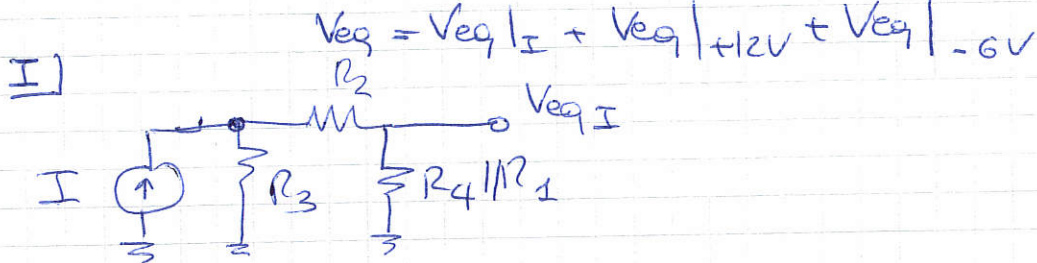 Veq = Veq|I + Veq|+12V + Veq|-6V
I]
R2
Veq I
I
R3
R4//R1